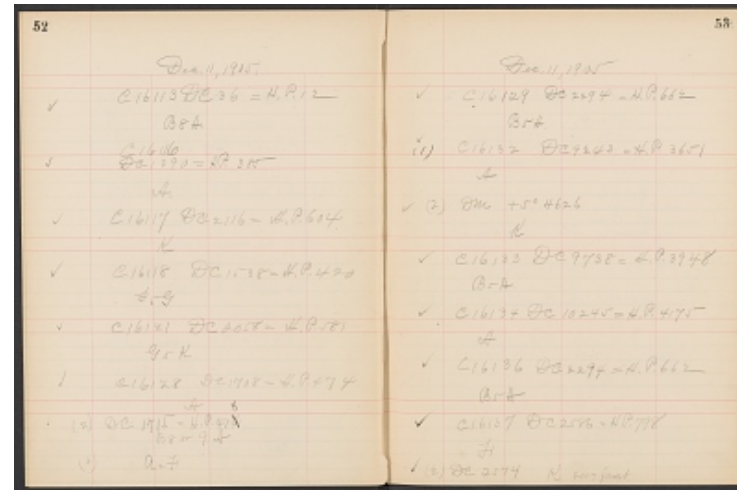 52
Dec. 11, 1905.
C16113 DC 36 = H.P. 12
B8A
C16116
DC 1390 = H.P. 385
A
C16117 DC 2116 = H.P. 604
K
C16118 DC 1538 = H.P. 420
F5G
DC 2058 = H.P. 581
G5K
C16128 DC 1708 = H.P. 474
A
(2) DC
53
Dec. 11, 1905
C16129 DC 2294 = H.P. 662
B5A
(1) C16132 DC 9243 = H.P. 3651
A
(2) DM. +5° 4626
K
C16133 DC 9738 = H.P. 3948
B5A
C16134 DC 10245 = H.P. 4175
A
C16136 DC 2294 = H.P. 662
B5A
C16137 DC 2586 = H.P. 718
F
(2) DC 2574 K